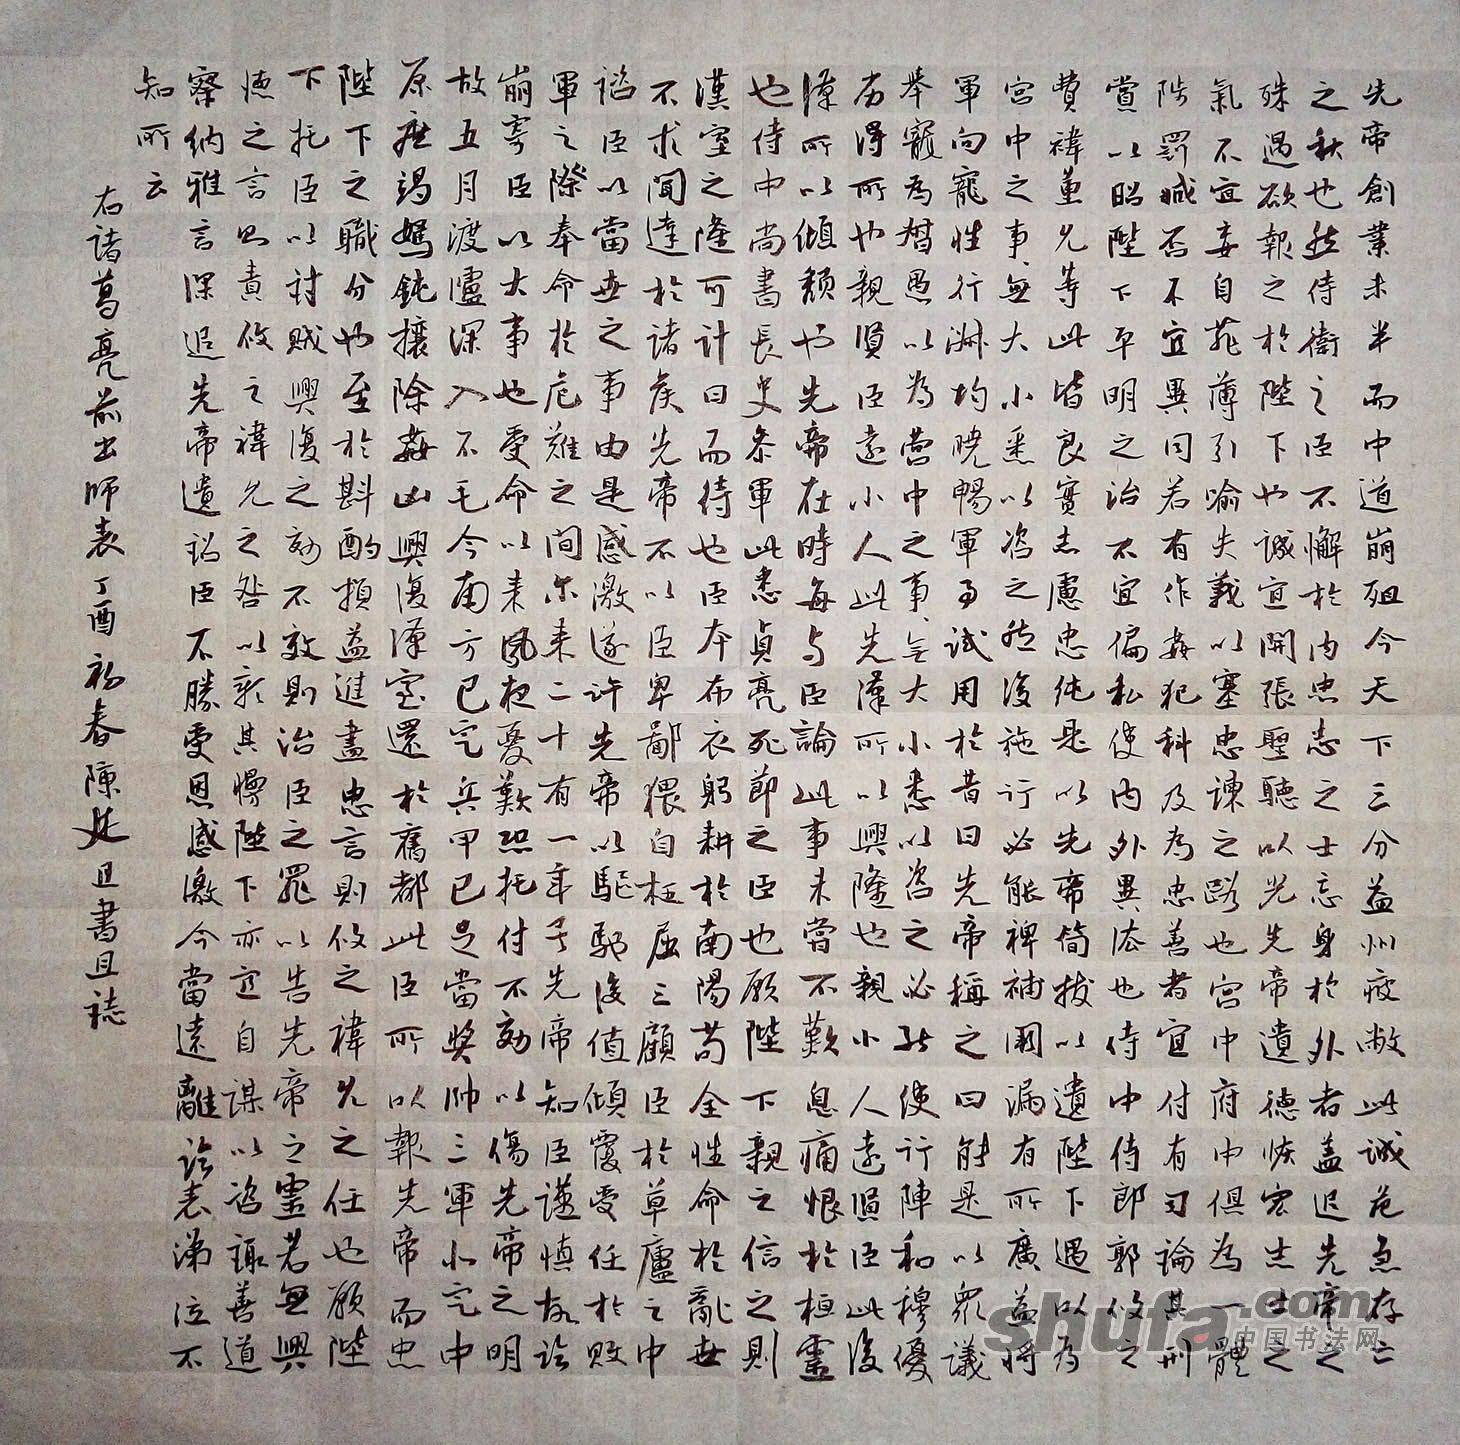 先帝創業未半而中道崩殂今天下三分益州疲敝此誠危急存亡
之秋也然侍衛之臣不懈於內忠志之士忘身於外者蓋追先帝之
殊遇欲報之於陛下也誠宜開張聖聽以光先帝遺德恢宏志士之
氣不宜妄自菲薄引喻失義以塞忠諫之路也宮中府中俱為一體
陟罰臧否不宜異同若有作姦犯科及為忠善者宜付有司論其刑
賞以昭陛下平明之治不宜偏私使內外異法也侍中侍郎郭攸之
費禕董允等此皆良實志慮忠純是以先帝簡拔以遺陛下遇以為
宮中之事無大小悉以咨之然後施行必能裨補闕漏有所廣益將
軍向寵性行淋均曉暢軍事試用於昔日先帝稱之曰能是以眾議
舉寵為督愚以為營中之事無大小悉以咨之必能使行陣和穆優
劣得所也親賢臣遠小人此先漢所以興隆也親小人遠賢臣此後
漢所以傾頹也先帝在時每与臣論此事未嘗不歎息痛恨於桓靈
也侍中尚書長史參軍此悉貞亮死節之臣也願陛下親之信之則
漢室之隆可計日而待也臣本布衣躬耕於南陽苟全性命於亂世
不求聞達於諸侯先帝不以臣卑鄙猥自枉屈三顧臣於草廬之中
諮臣以當世之事由是感激遂許先帝以驅馳後值傾覆受任於敗
軍之際奉命於危難之間尔來二十有一年矣先帝知臣謹慎故臨
崩寄臣以大事也受命以來夙夜憂歎恐托付不効以傷先帝之明
故五月渡瀘深入不毛今南方已定兵甲已足當獎帥三軍北定中
原庶竭駑鈍攘除姦凶興復漢室還於舊都此臣所以報先帝而忠
陛下之職分也至於斟酌損益進盡忠言則攸之禕允之任也願陛
下托臣以討賊興復之効不效則治臣之罪以告先帝之靈若無興
德之言則責攸之禕允之咎以彰其慢陛下亦宜自謀以諮諏善道
察納雅言深追先帝遺詔臣不勝受恩感激今當遠離臨表涕泣不
知所云
右諸葛亮前出師表丁酉初春陳且書且誌
shufa.com
中国书法网